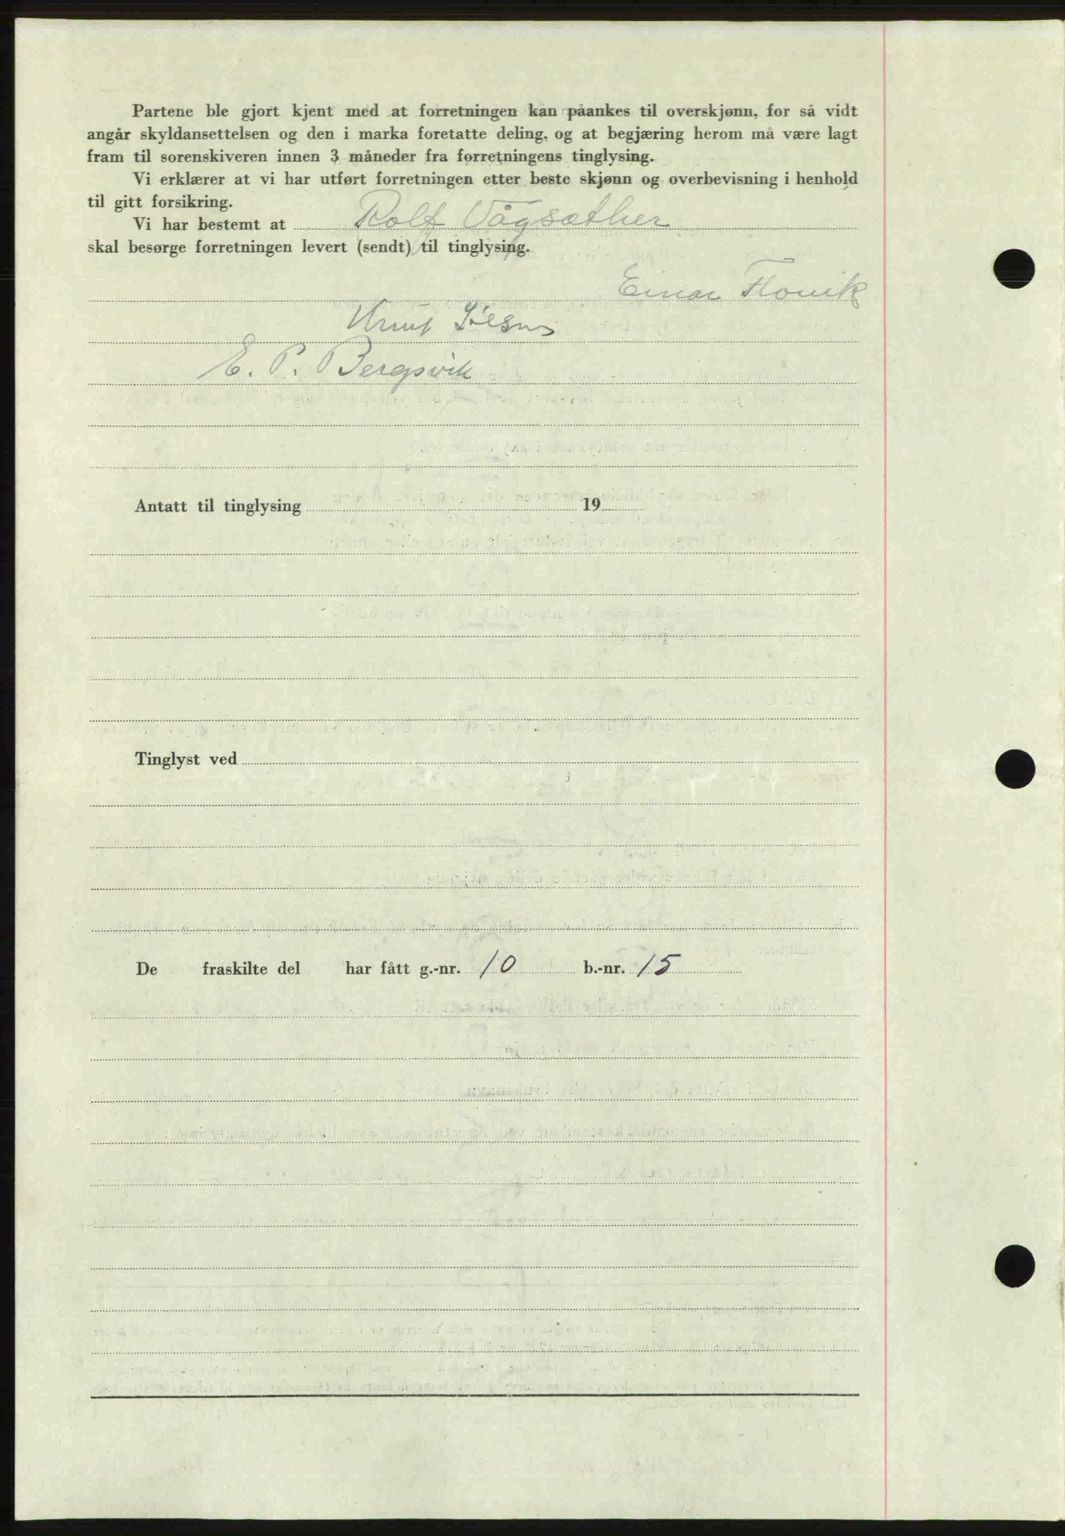 Partene ble gjort kjent med at forretningen kan påankes til overskjønn, for så vidt
angår skyldansettelsen og den i marka foretatte deling, og at begjæring herom må være lagt
fram til sorenskiveren innen 3 måneder fra forretningens tinglysing.
Vi erklærer at vi har utført forretningen etter beste skjønn og overbevisning i henhold
til gitt forsikring.
Vi har bestemt at Rolf Vågsæther
skal besørge forretningen levert (sendt) til tinglysing.
Einar Flovik
Knut
E. P. Bergsvik
Antatt til tinglysing 19
Tinglyst ved
De fraskilte del har fått g.-nr. 10 b.-nr. 15